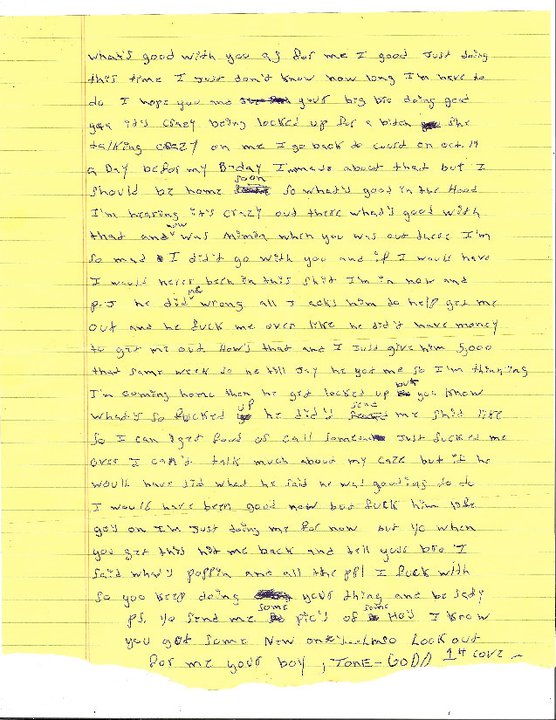 what's good with you as for me I good Just doing
this time I Just don't know how long I'm here to
do I hope you and your big bro doing good
yea it's crazy being locked up for a bitch she
talking crazy on me I go back to cword on oct. 19
a Day befor my B-day I'm mad about that but I
should be home soon so what's good in the Hood
I'm hearing it's crazy out there what's good with
that and how was when you was out there I'm
so mad I didn't go with you and if I would have
I would never been in this shit I'm in now and
P.J he did me wrong all I asks him to help get me
out and he fuck me over like he did't have money
to get me out How's that and I Just give him 5,000
that same week so he tell Jay he got me so I'm thinging
I'm coming home then he get locked up but you know
what's so fucked up he did't send me shit like
so I can get food or call someone Just fucked me
over I can't talk much about my case but if he
would have did what he said he was to do
I would have been good now but fuck him life
go's on I'm Just doing me for now but yo when
you get this hit me back and tell your bro I
said what's poppin and all the ppl I fuck with
so you keep doing your thing and be safe
ps. yo send me some pic's of some Ho's I know
you got some New one's Lmao Lookout
for me your boy, TONE-GODD 1# love